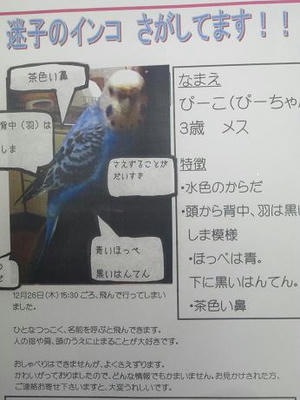 迷子のインコ さがしてます！！
茶色い鼻
背中（羽）は
しま
さえずることが
だいすき
青いほっぺ
黒いはんてん
なまえ
ぴーこ（ぴーちゃん
3歳　メス
特徴
・水色のからだ
・頭から背中、羽は黒い
しま模様
・ほっぺは青。
下に黒いはんてん。
・茶色い鼻
12月26日（木）15:30 ごろ、飛んで行ってしまい
ました。
ひとなつっこく、名前を呼ぶと飛んできます。
人の指や肩、頭のうえに止まることが大好きです。
おしゃべりはできませんが、よくさえずります。
かわいがっておりましたので、どんな情報でもかまいません。お見かけされた方、
ご連絡お寄せ下さいますと、大変うれしいです。